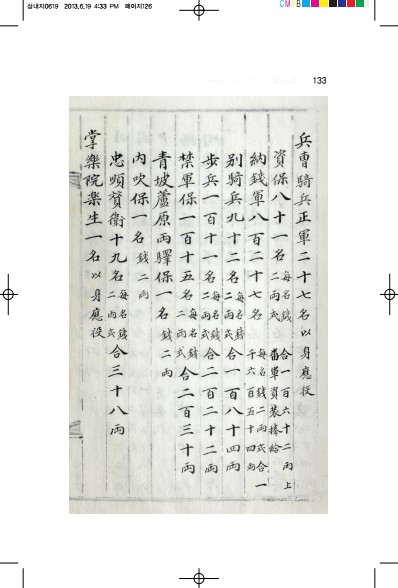 삼내지0619 2013.6.19 4:33 PM 페이지126
CMYB
133
兵曹騎兵正軍二十七名以身應役
資保八十一名每名錢二兩式合一百六十二兩上番軍資裝捧給
納錢軍八百二十七名每名錢二兩式合一千六百五十四兩
別騎兵九十二名每名錢二兩式合一百八十四兩
步兵一百十一名每名錢二兩式合二百二十二兩
禁軍保一百十五名每名錢二兩式合二百三十兩
青坡蘆原兩驛保一名錢二兩
內吹保一名錢二兩
忠順贊衛十九名每名錢二兩式合三十八兩
掌樂院樂生一名以身應役